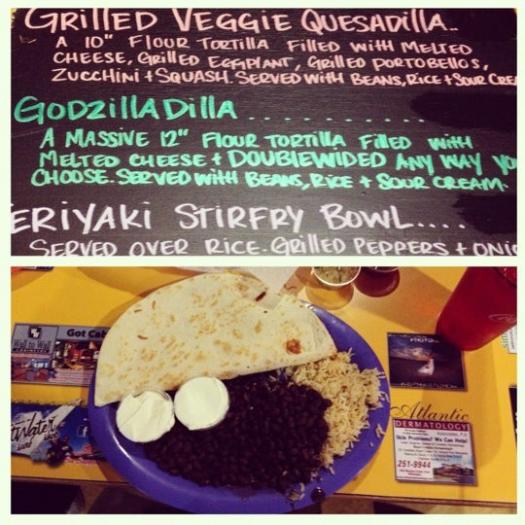 GRILLED VEGGIE QUESADILLA..
A 10" FLOUR TORTILLA FILLED WITH MELTED
CHEESE, GRILLED EGGPLANT, GRILLED PORTOBELLOS,
ZUCCHINI + SQUASH. SERVED WITH BEANS, RICE + SOUR CREA
GODZILLADILLA...........
A MASSIVE 12" FLOUR TORTILLA FILLED WITH
MELTED CHEESE + DOUBLEWIDED ANY WAY YO
CHOOSE. SERVED WITH BEANS, RICE + SOUR CREAM.
ERIYAKI STIRFRY BOWL....
SERVED OVER RICE. GRILLED PEPPERS + ONIO
Got Cab
Wall to Wall
Water
Atlantic
DERMATOLOGY
Skin Problems? We Can Help!
251-9944